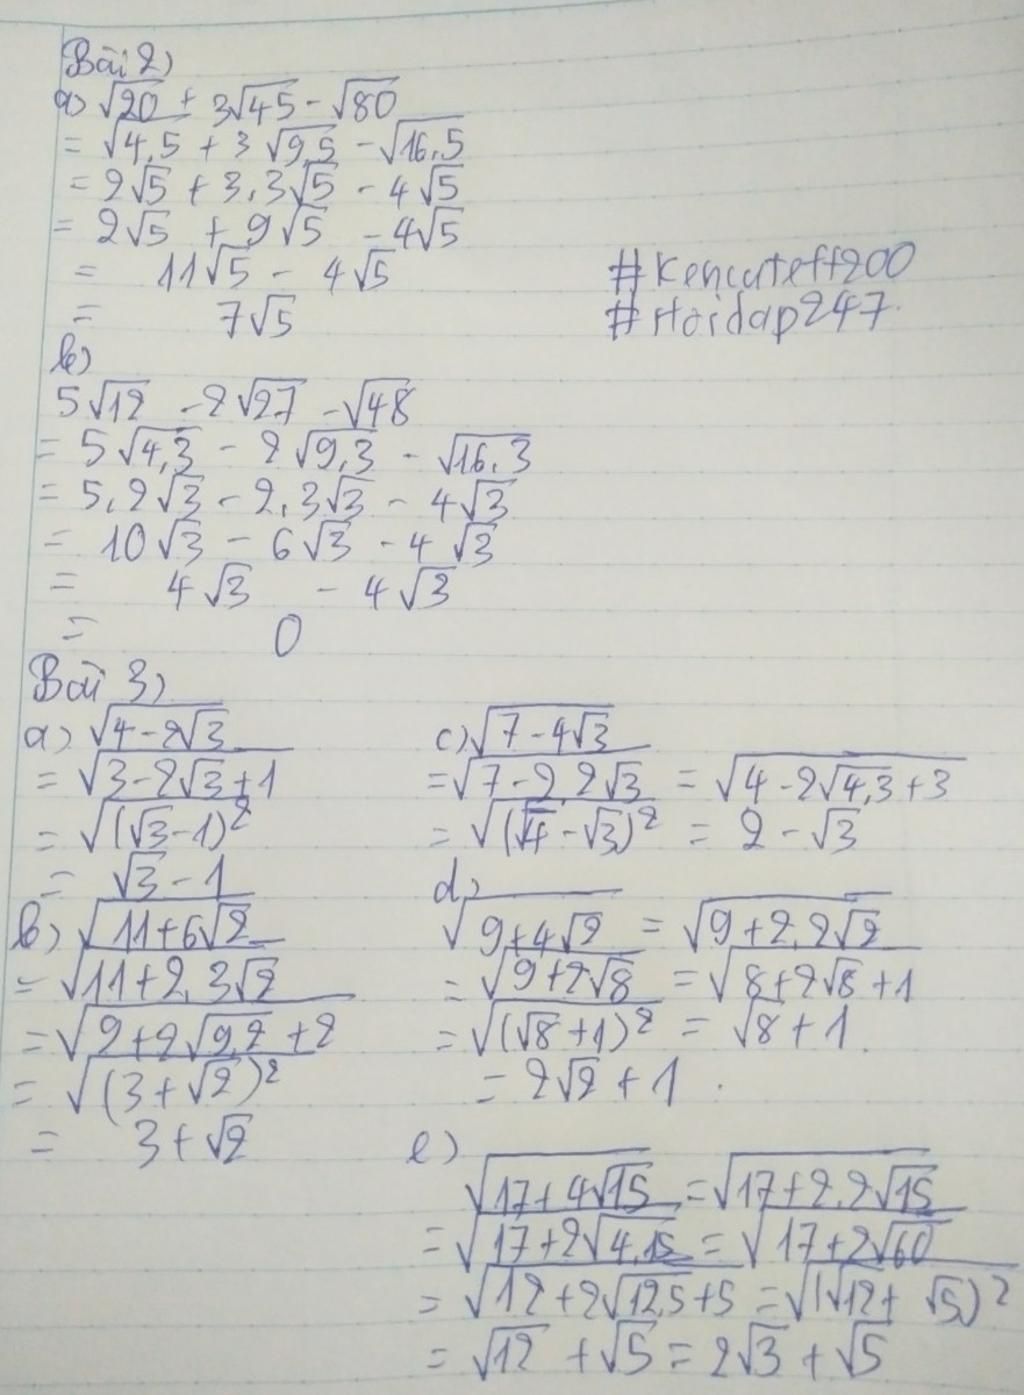 Bài 2)
a) √20 + 3√45 - √80
= √4,5 + 3√9,5 - √16,5
= 2√5 + 3,3√5 - 4√5
= 2√5 + 9√5 - 4√5
= 11√5 - 4√5
= 7√5
#Kencuteff200
#Hoidap247
b)
5√12 - 2√27 - √48
= 5√4,3 - 2√9,3 - √16,3
= 5,2√3 - 2,3√3 - 4√3
= 10√3 - 6√3 - 4√3
= 4√3 - 4√3
= 0
Bài 3)
a) √(4 - 2√3)
= √(3 - 2√3 + 1)
= √((√3 - 1)²)
= √3 - 1
b) √(11 + 6√2)
= √(11 + 2,3√2)
= √(9 + 2√9,2 + 2)
= √((3 + √2)²)
= 3 + √2
c) √(7 - 4√3)
= √(7 - 2,2√3) = √(4 - 2√4,3 + 3)
= √((√4 - √3)²) = 2 - √3
d)
√(9 + 4√2) = √(9 + 2,2√2)
= √(9 + 2√8) = √(8 + 2√8 + 1)
= √((√8 + 1)²) = √8 + 1
= 2√2 + 1.
e)
√(17 + 4√15) = √(17 + 2,2√15)
= √(17 + 2√4,15) = √(17 + 2√60)
= √(12 + 2√12,5 + 5) = √((√12 + √5)²)
= √12 + √5 = 2√3 + √5